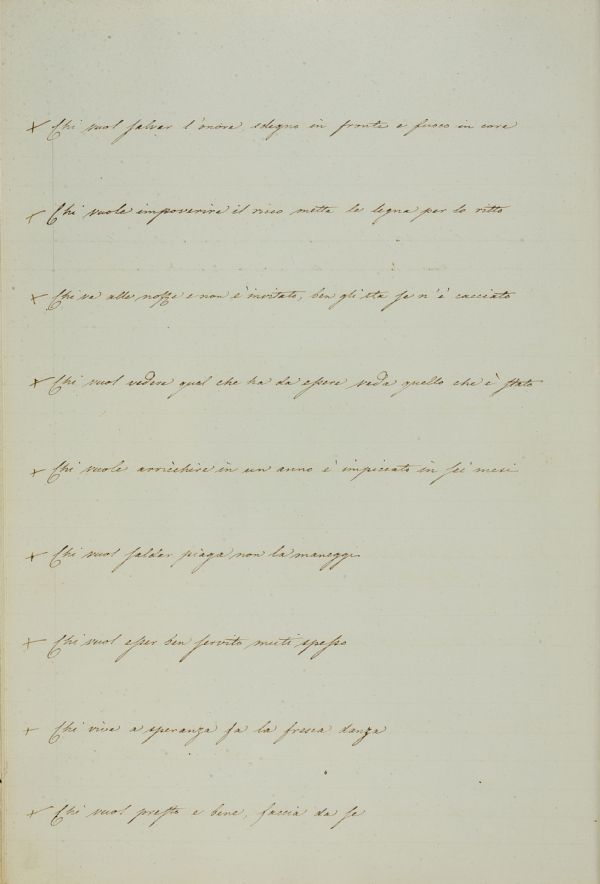 × Chi vuol salvar l'onore, sdegno in fronte e fuoco in core
× Chi vuole impoverire il ricco metta le legna per lo ritto
× Chi va alle nozze e non è invitato, ben gli sta se n'è cacciato
× Chi vuol vedere quel che ha da essere veda quello che è stato
× Chi vuole arricchire in un anno è impiccato in sei mesi
× Chi vuol saldar piaga non la maneggi
× Chi vuol esser ben servito muti spesso
× Chi vive a speranza fa la fresca danza
× Chi vuol presto e bene, faccia da se